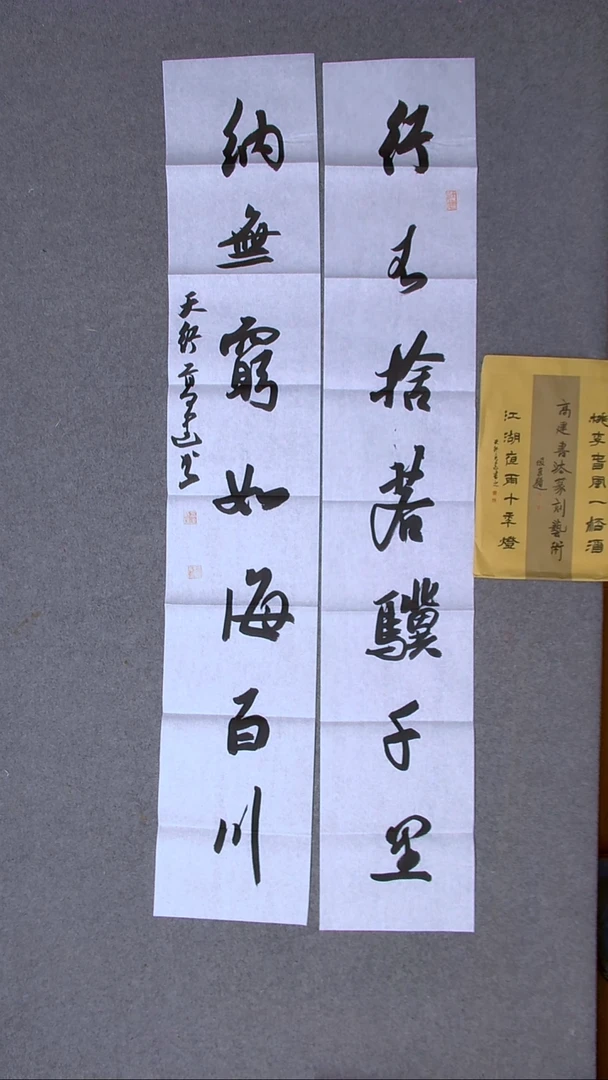 行不捨若驥千里
納無窮如海百川
天行高建书
桃李春風一杯酒
高建書法篆刻藝術
江湖夜雨十年燈